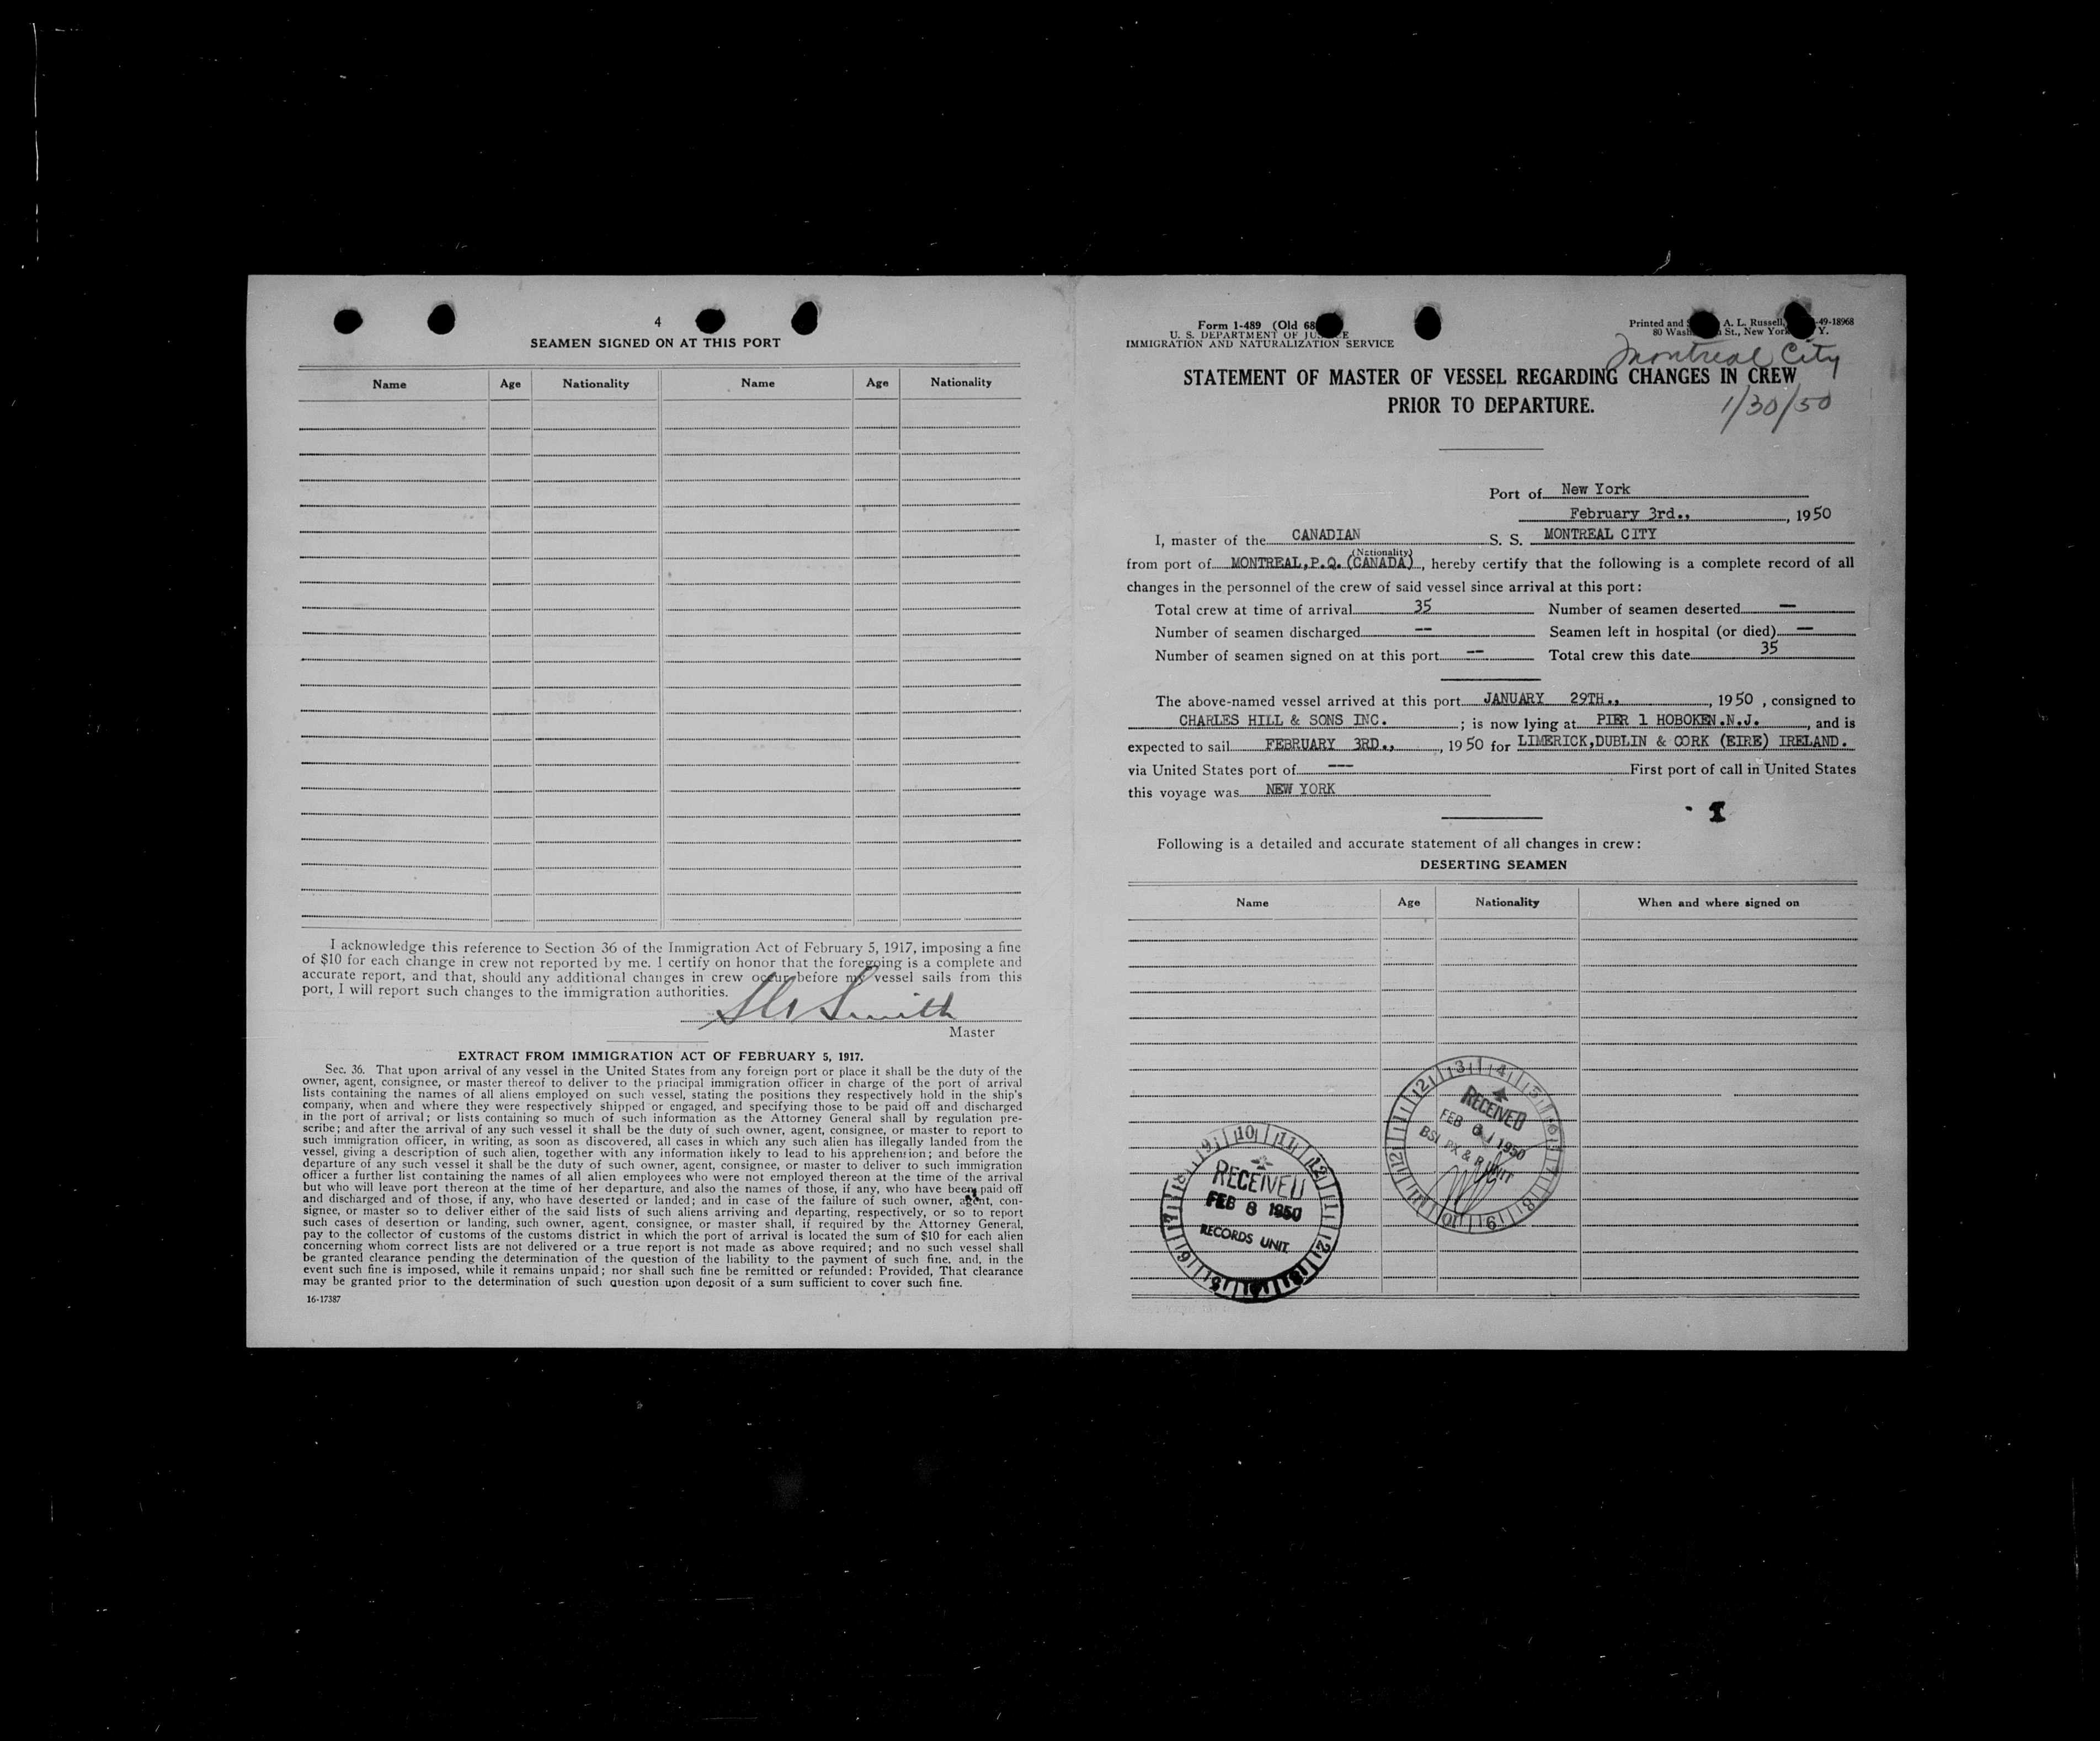 4
SEAMEN SIGNED ON AT THIS PORT
Name Age Nationality Name Age Nationality
I acknowledge this reference to Section 36 of the Immigration Act of February 5, 1917, imposing a fine
of $10 for each change in crew not reported by me. I certify on honor that the foregoing is a complete and
accurate report, and that, should any additional changes in crew occur before my vessel sails from this
port, I will report such changes to the immigration authorities.
Smith
Master
EXTRACT FROM IMMIGRATION ACT OF FEBRUARY 5, 1917.
Sec. 36. That upon arrival of any vessel in the United States from any foreign port or place it shall be the duty of the
owner, agent, consignee, or master thereof to deliver to the principal immigration officer in charge of the port of arrival
lists containing the names of all aliens employed on such vessel, stating the positions they respectively hold in the ship's
company, when and where they were respectively shipped or engaged, and specifying those to be paid off and discharged
in the port of arrival; or lists containing so much of such information as the Attorney General shall by regulation pre-
scribe; and after the arrival of any such vessel it shall be the duty of such owner, agent, consignee, or master to report to
such immigration officer, in writing, as soon as discovered, all cases in which any such alien has illegally landed from the
vessel, giving a description of such alien, together with any information likely to lead to his apprehension; and before the
departure of any such vessel it shall be the duty of such owner, agent, consignee, or master to deliver to such immigration
officer a further list containing the names of all alien employees who were not employed thereon at the time of the arrival
but who will leave port thereon at the time of her departure, and also the names of those, if any, who have been paid off
and discharged and of those, if any, who have deserted or landed; and in case of the failure of such owner, agent, con-
signee, or master so to deliver either of the said lists of such aliens arriving and departing, respectively, or so to report
such cases of desertion or landing, such owner, agent, consignee, or master shall, if required by the Attorney General,
pay to the collector of customs of the customs district in which the port of arrival is located the sum of $10 for each alien
concerning whom correct lists are not delivered or a true report is not made as above required; and no such vessel shall
be granted clearance pending the determination of the question of the liability to the payment of such fine, and, in the
event such fine is imposed, while it remains unpaid; nor shall such fine be remitted or refunded: Provided, That clearance
may be granted prior to the determination of such question upon deposit of a sum sufficient to cover such fine.
16-17387
Form 1-489 (Old 68
U. S. DEPARTMENT OF
IMMIGRATION AND NATURALIZATION SERVICE
Printed and A. L. Russell, -49-18968
80 Wash St., New York Y.
Montreal City
STATEMENT OF MASTER OF VESSEL REGARDING CHANGES IN CREW
PRIOR TO DEPARTURE.
1/30/50
Port of New York
February 3rd., , 1950
I, master of the CANADIAN S. S. MONTREAL CITY
(Nationality)
from port of MONTREAL,P.Q. (CANADA) , hereby certify that the following is a complete record of all
changes in the personnel of the crew of said vessel since arrival at this port:
Total crew at time of arrival 35 Number of seamen deserted —
Number of seamen discharged -- Seamen left in hospital (or died) —
Number of seamen signed on at this port -- Total crew this date 35
The above-named vessel arrived at this port JANUARY 29TH., , 1950 , consigned to
CHARLES HILL & SONS INC. ; is now lying at PIER 1 HOBOKEN.N.J. , and is
expected to sail FEBRUARY 3RD., , 1950 for LIMERICK,DUBLIN & CORK (EIRE) IRELAND.
via United States port of --- First port of call in United States
this voyage was NEW YORK
Following is a detailed and accurate statement of all changes in crew:
DESERTING SEAMEN
Name Age Nationality When and where signed on
RECEIVED
FEB 1950
BSI PX & R UNIT
RECEIVED
FEB 8 1950
RECORDS UNIT